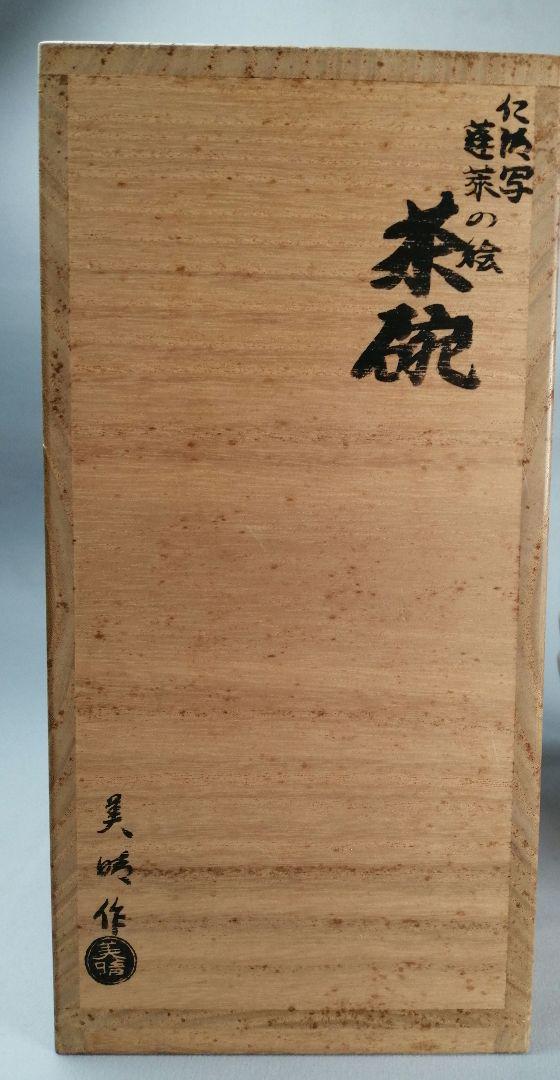 仁清写
蓬莱の絵
茶碗
美晴作
美晴